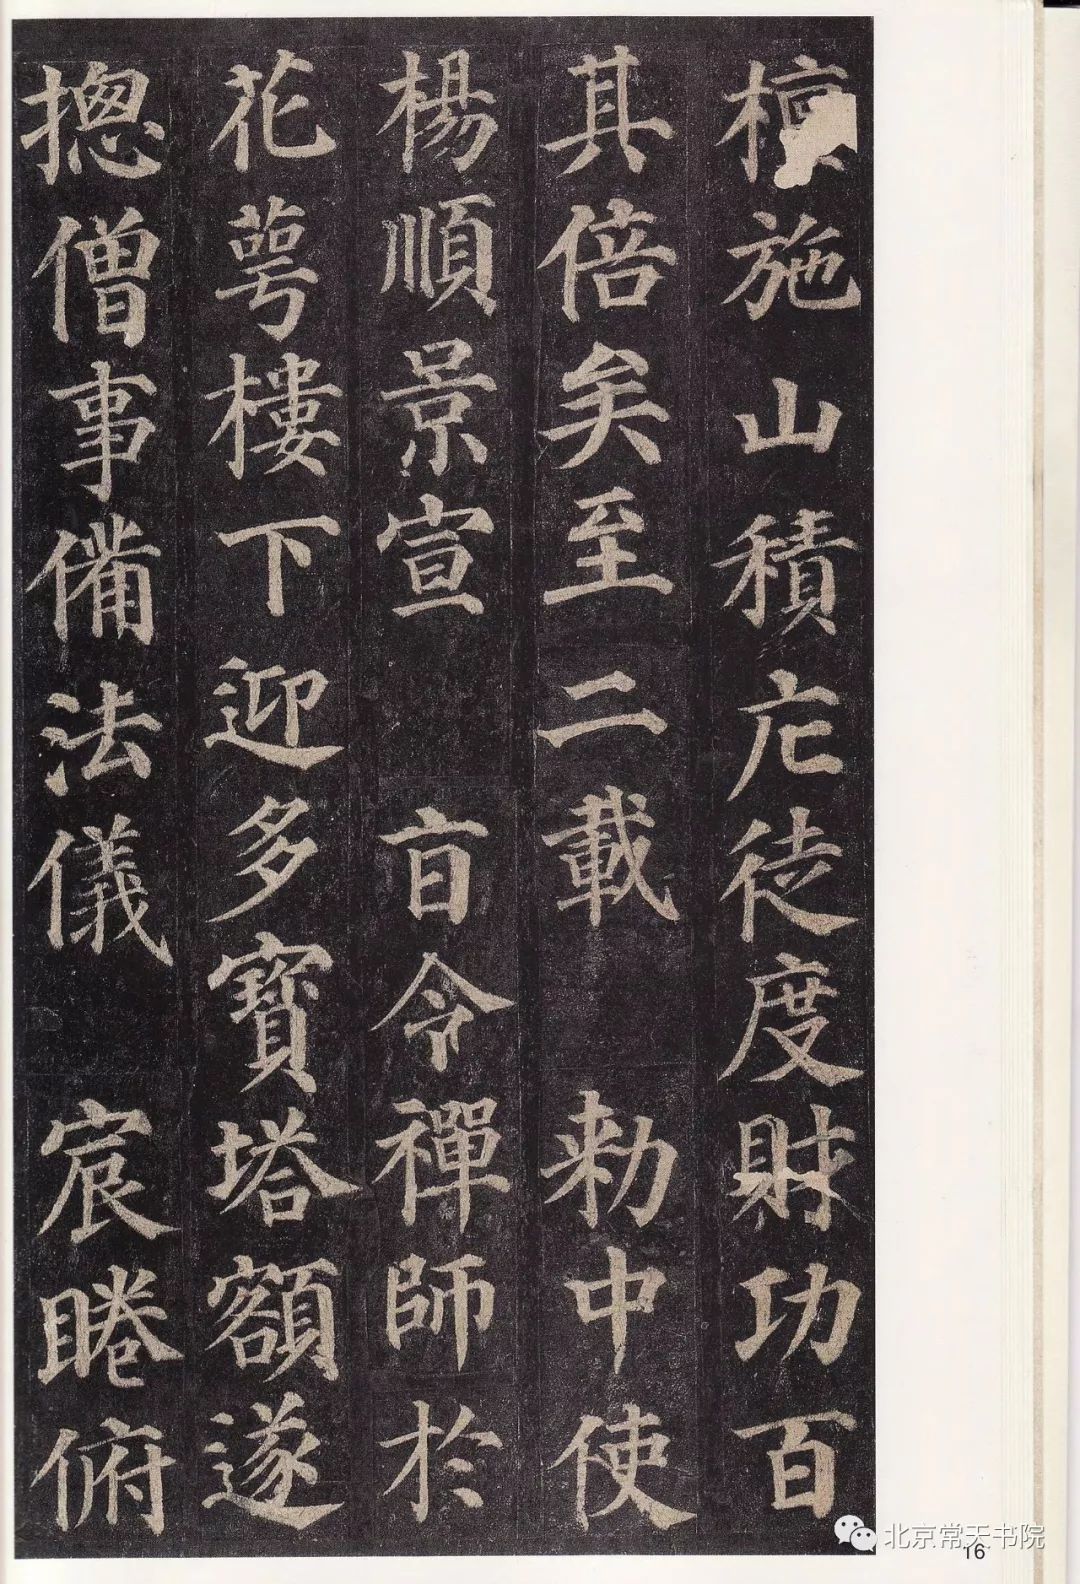 檀施山積庀徒度財功百
其倍矣至二載 勑中使
楊順景宣 㫖令禪師於
花萼樓下迎多寶塔額遂
摠僧事備法儀 宸睠俯
北京常天书院
16